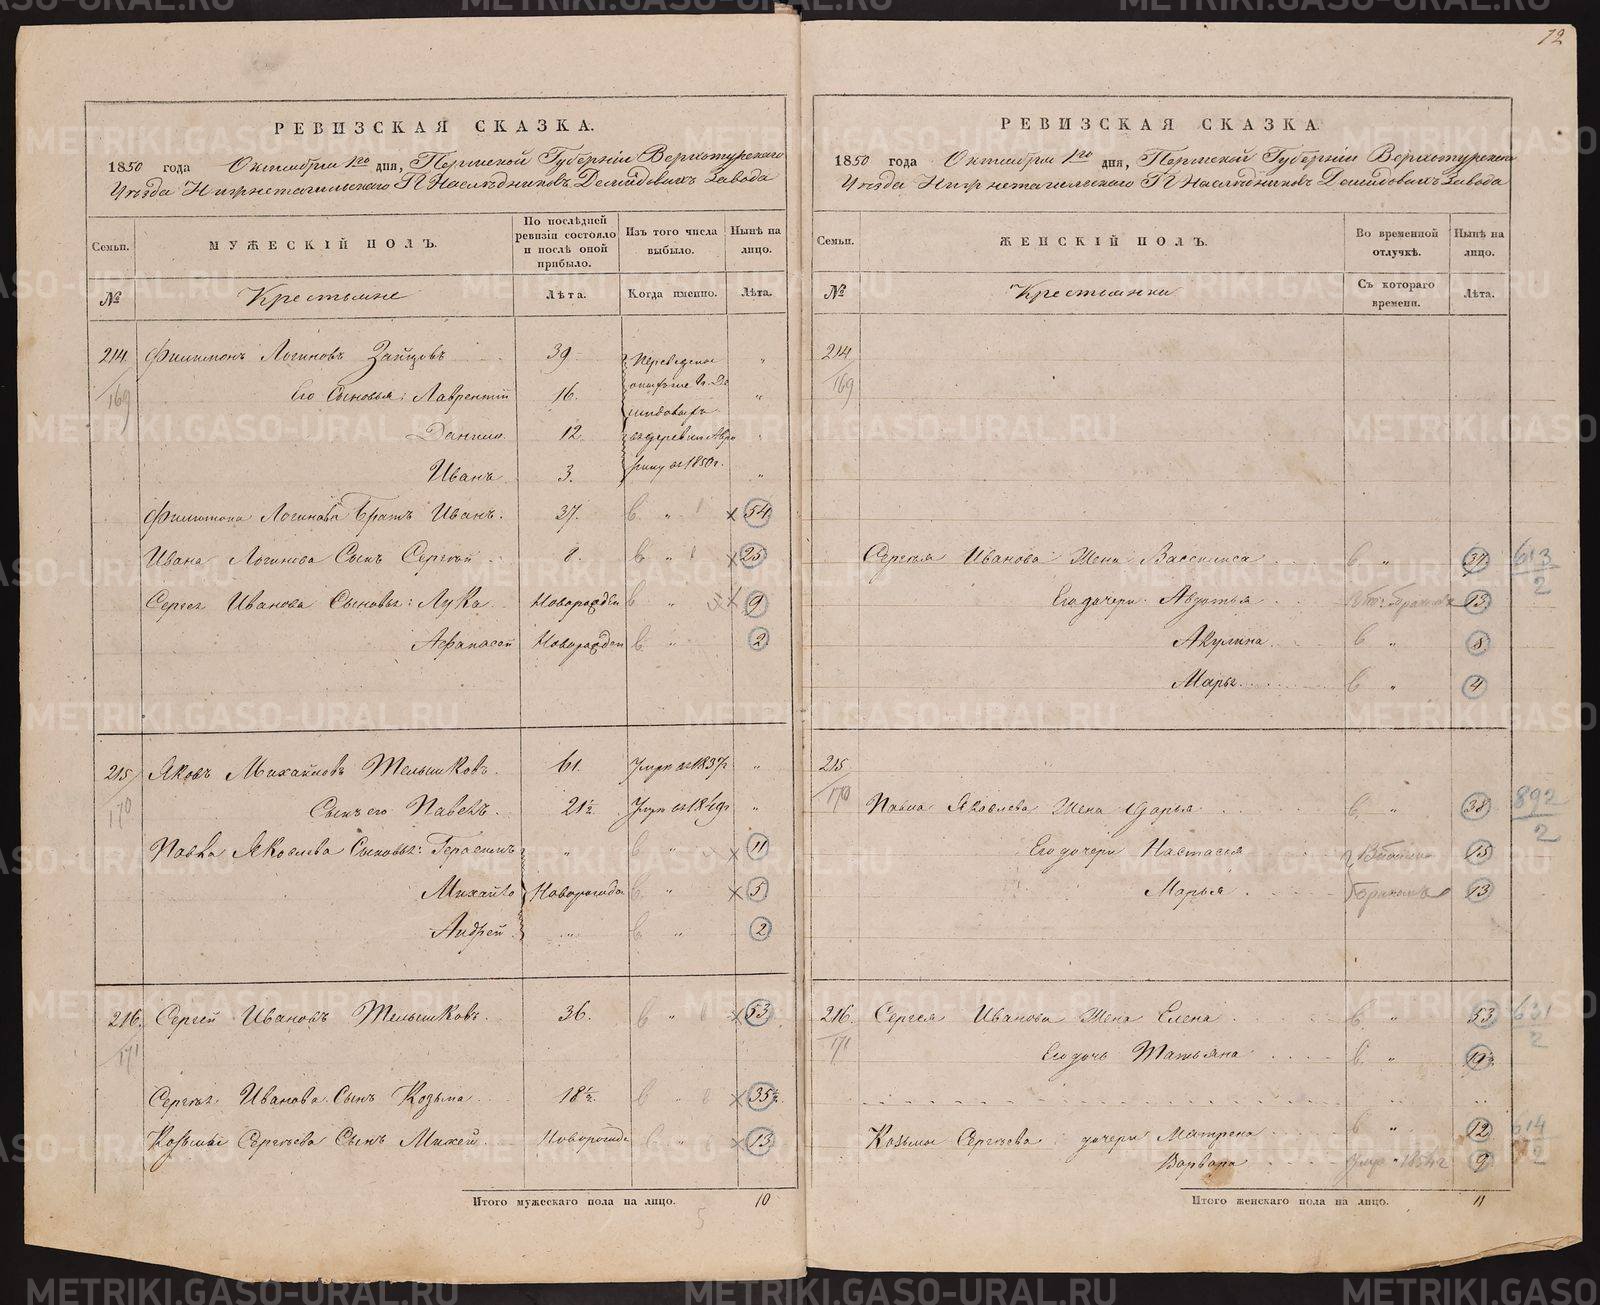 12
РЕВИЗСКАЯ СКАЗКА.
1850 года Октября 1го дня, Пермской Губерніи Верхотурскаго
Уѣзда Нижнетагильскаго Наслѣдниковъ Демидовыхъ Завода
Семьи.
МУЖЕСКІЙ ПОЛЪ.
По послѣдней ревизіи состояло и послѣ оной прибыло.
Изъ того числа выбыло.
Нынѣ на лицо.
№
Крестьяне
Лѣта.
Когда именно.
Лѣта.
214 Филимонъ Логиновъ Зайцовъ 39 Переведены "
169 Его Сыновья: Лаврентій 16. "
Данило 12. въ деревни "
Иванъ 3. 1850г. "
Филимона Логинова Братъ Иванъ. 37. " 54
Ивана Логинова Сынъ Сергей " 25
Сергея Иванова Сыновья: Лука Новорожден " 9
Афанасей Новорожден " 2
215 Яковъ Михайловъ Мельшковъ 61. "
170 Сынъ его Павелъ. 21½ "
Павла Яковлева Сыновья: Герасимъ " " 11
Михайло Новорожде " 5
Андрей " " 2
216. Сергей Ивановъ Мельшковъ 36. " 53
171
Сергея Иванова Сынъ Козьма 18½. " 35½
Козьмы Сергеева Сынъ Михей Новорожде " 13
Итого мужескаго пола на лицо. 10
5
РЕВИЗСКАЯ СКАЗКА
1850 года Октября 1го дня, Пермской Губерніи Верхотурскаго
Уѣзда Нижнетагильскаго Наслѣдниковъ Демидовыхъ Завода
Семьи.
ЖЕНСКІЙ ПОЛЪ.
Во временной отлучкѣ.
Нынѣ на лицо.
№
Крестьянки
Съ котораго времени.
Лѣта.
214
169
Сергея Иванова Жена Василиса " 37 613/2
Его дочери Авдотья 13
Акулина " 8
Марья " 4
215
170 Павла Яковлева Жена Дарья " 38 892/2
Его дочери Настасья 15
Марья 13
216. Сергея Иванова Жена Елена " 53 631/2
171 Его дочь Татьяна "
Козьмы Сергеева дочери Матрена " 12 614/2
Варвара 9
Итого женскаго пола на лицо. 11
METRIKI.GASO-URAL.RU